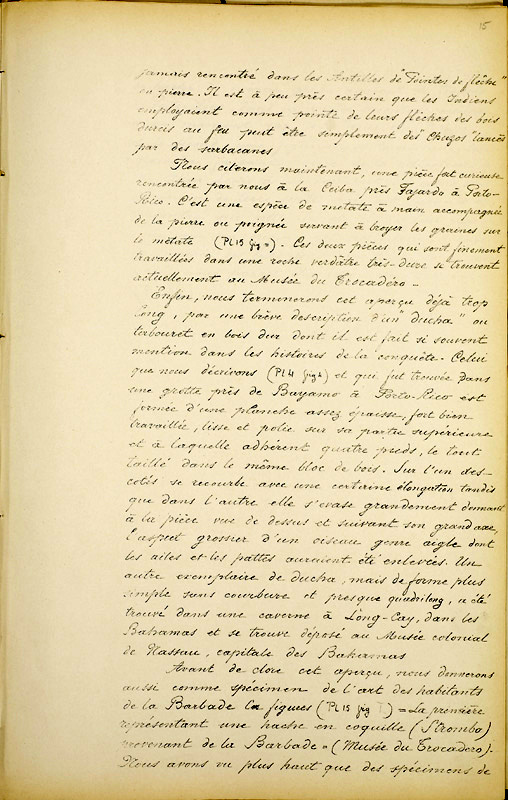 15
jamais rencontré dans les Antilles de "Pointes de flêche"
en pierre. Il est à peu près certain que les Indiens
employaient comme pointe de leurs flêches des bois
durcis au feu peut être simplement des Chuzos lancés
par des sarbacanes
Nous citerons maintenant, une pièce fort curieuse
rencontrée par nous à la Ceiba près Fajardo à Porto-
Rico. C'est une espèce de metate à main accompagnée
de la pierre ou poignée servant à broyer les graines sur
le métate (Pl 15 fig ). Ces deux pièces qui sont finement
travaillées dans une roche verdâtre très-dure se trouvent
actuellement au Musée du Trocadéro -
Enfin, nous terminerons cet aperçu déjà trop
long, par une brève description d'un "ducha" ou
tabouret en bois dur dont il est fait si souvent
mention dans les histoires de la conquête. Celui
que nous décrivons (Pl 4 fig ) et qui fut trouvée dans
une grotte près de Bayamo à Porto-Rico est
formée d'une planche assez épaisse, fort bien
travaillée, lisse et polie sur sa partie supérieure
et à laquelle adhérent quatre pieds, le tout
taillé dans le même bloc de bois. Sur l'un des
cotés se recourbe avec une certaine élongation tandis
que dans l'autre elle s'evase grandement donnant
à la pièce vue de dessus et suivant son grand axe,
l'aspect grossier d'un oiseau genre aigle dont
les ailes et les pattes auraient été enlevées. Un
autre exemplaire de ducha, mais de forme plus
simple sans courbure et presque quadrilong, a été
trouvé dans une caverne à Long-Cay, dans les
Bahamas et se trouve déposé au Musée colonial
de Nassau, capitale des Bahamas
Avant de clore cet aperçu, nous donnerons
aussi comme spécimen de l'art des habitants
de la Barbade la figures (Pl 15 fig ) = La première
représentant une hache en coquille (Strombo)
provenant de la Barbade = (Musée du Trocadero).
Nous avons vu plus haut que des spécimens de